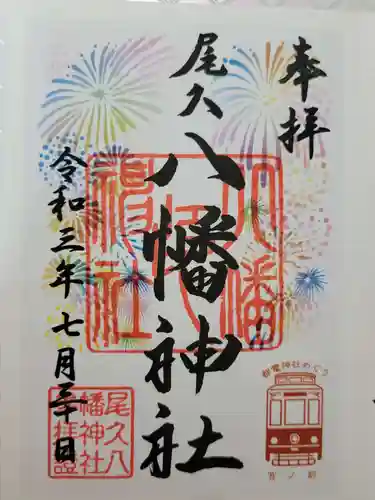 奉拝
尾久八幡神社
令和三年七月三十日
都電神社めぐり
宮ノ前
尾久八
幡神社